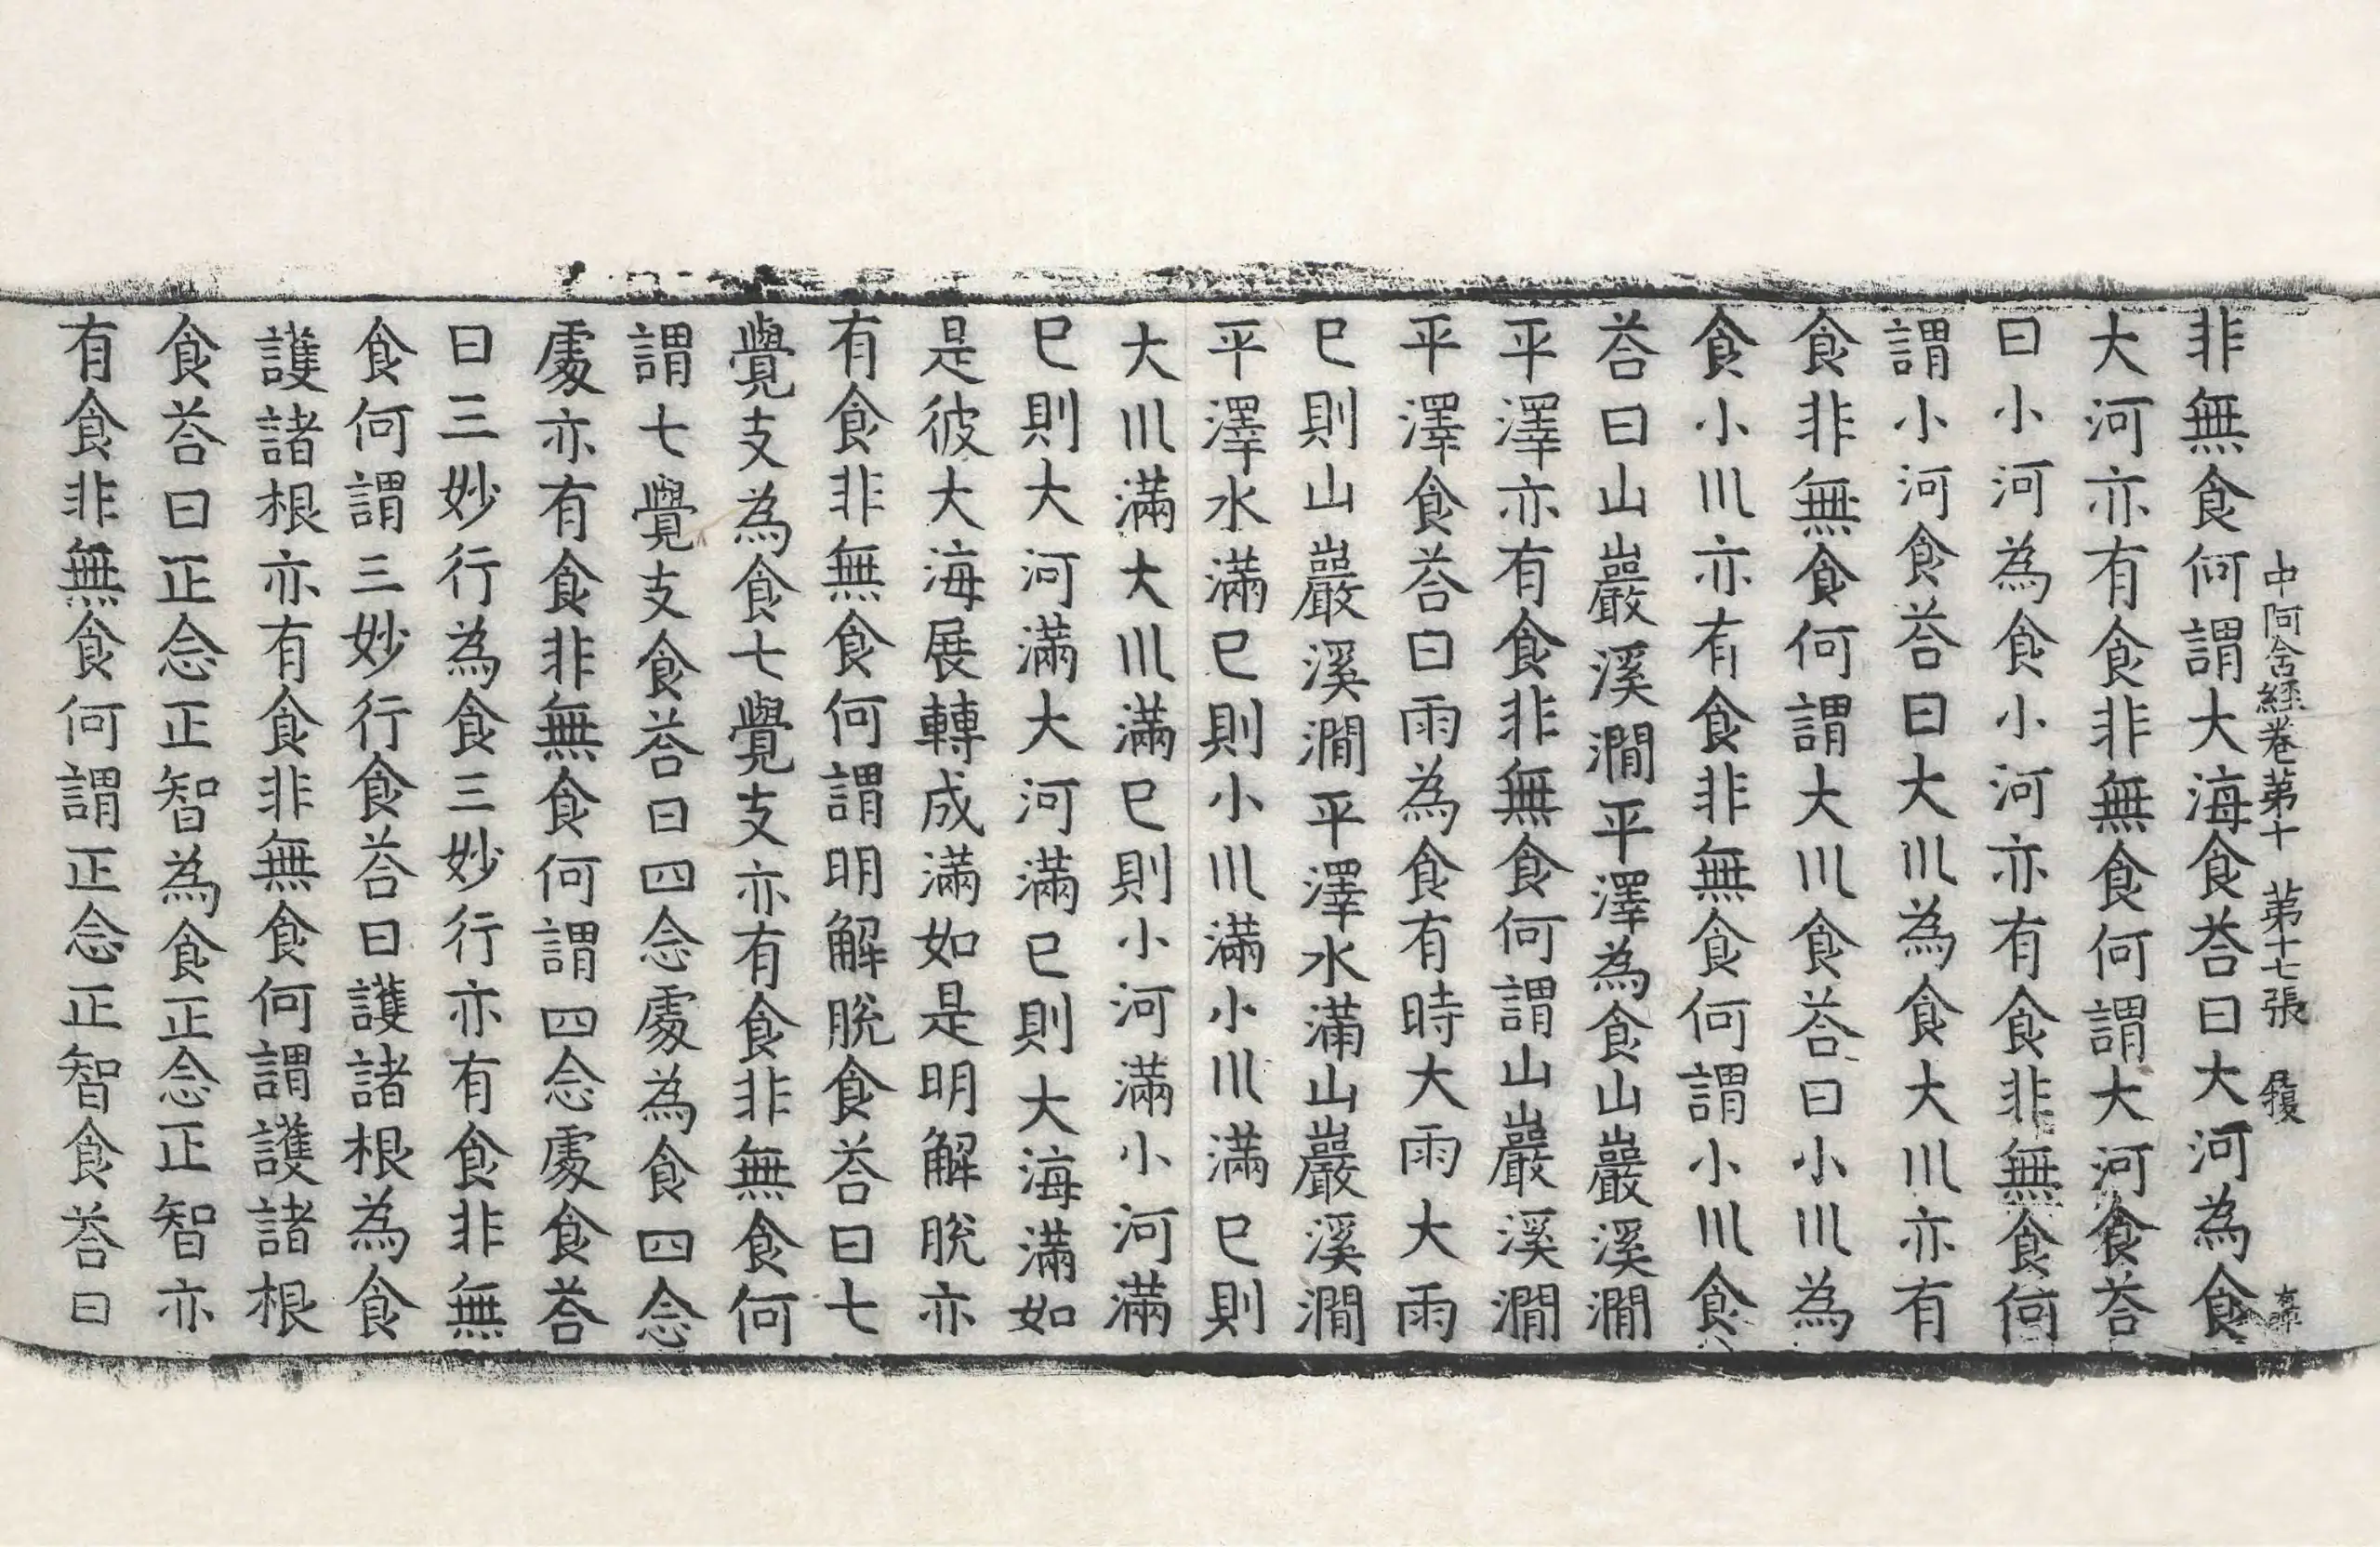 中阿含経卷第十 第十七張 履
非無食何謂大海食荅曰大河為食
大河亦有食非無食何謂大河食荅
曰小河為食小河亦有食非無食何
謂小河食荅曰大川為食大川亦有
食非無食何謂大川食荅曰小川為
食小川亦有食非無食何謂小川食
荅曰山巖溪澗平澤為食山巖溪澗
平澤亦有食非無食何謂山巖溪澗
平澤食荅曰雨為食有時大雨大雨
已則山巖溪澗平澤水滿山巖溪澗
平澤水滿已則小川滿小川滿已則
大川滿大川滿已則小河滿小河滿
已則大河滿大河滿已則大海滿如
是彼大海展轉成滿如是明解脫亦
有食非無食何謂明解脫食荅曰七
覺支為食七覺支亦有食非無食何
謂七覺支食荅曰四念處為食四念
處亦有食非無食何謂四念處食荅
曰三妙行為食三妙行亦有食非無
食何謂三妙行食荅曰護諸根為食
護諸根亦有食非無食何謂護諸根
食荅曰正念正智為食正念正智亦
有食非無食何謂正念正智食荅曰